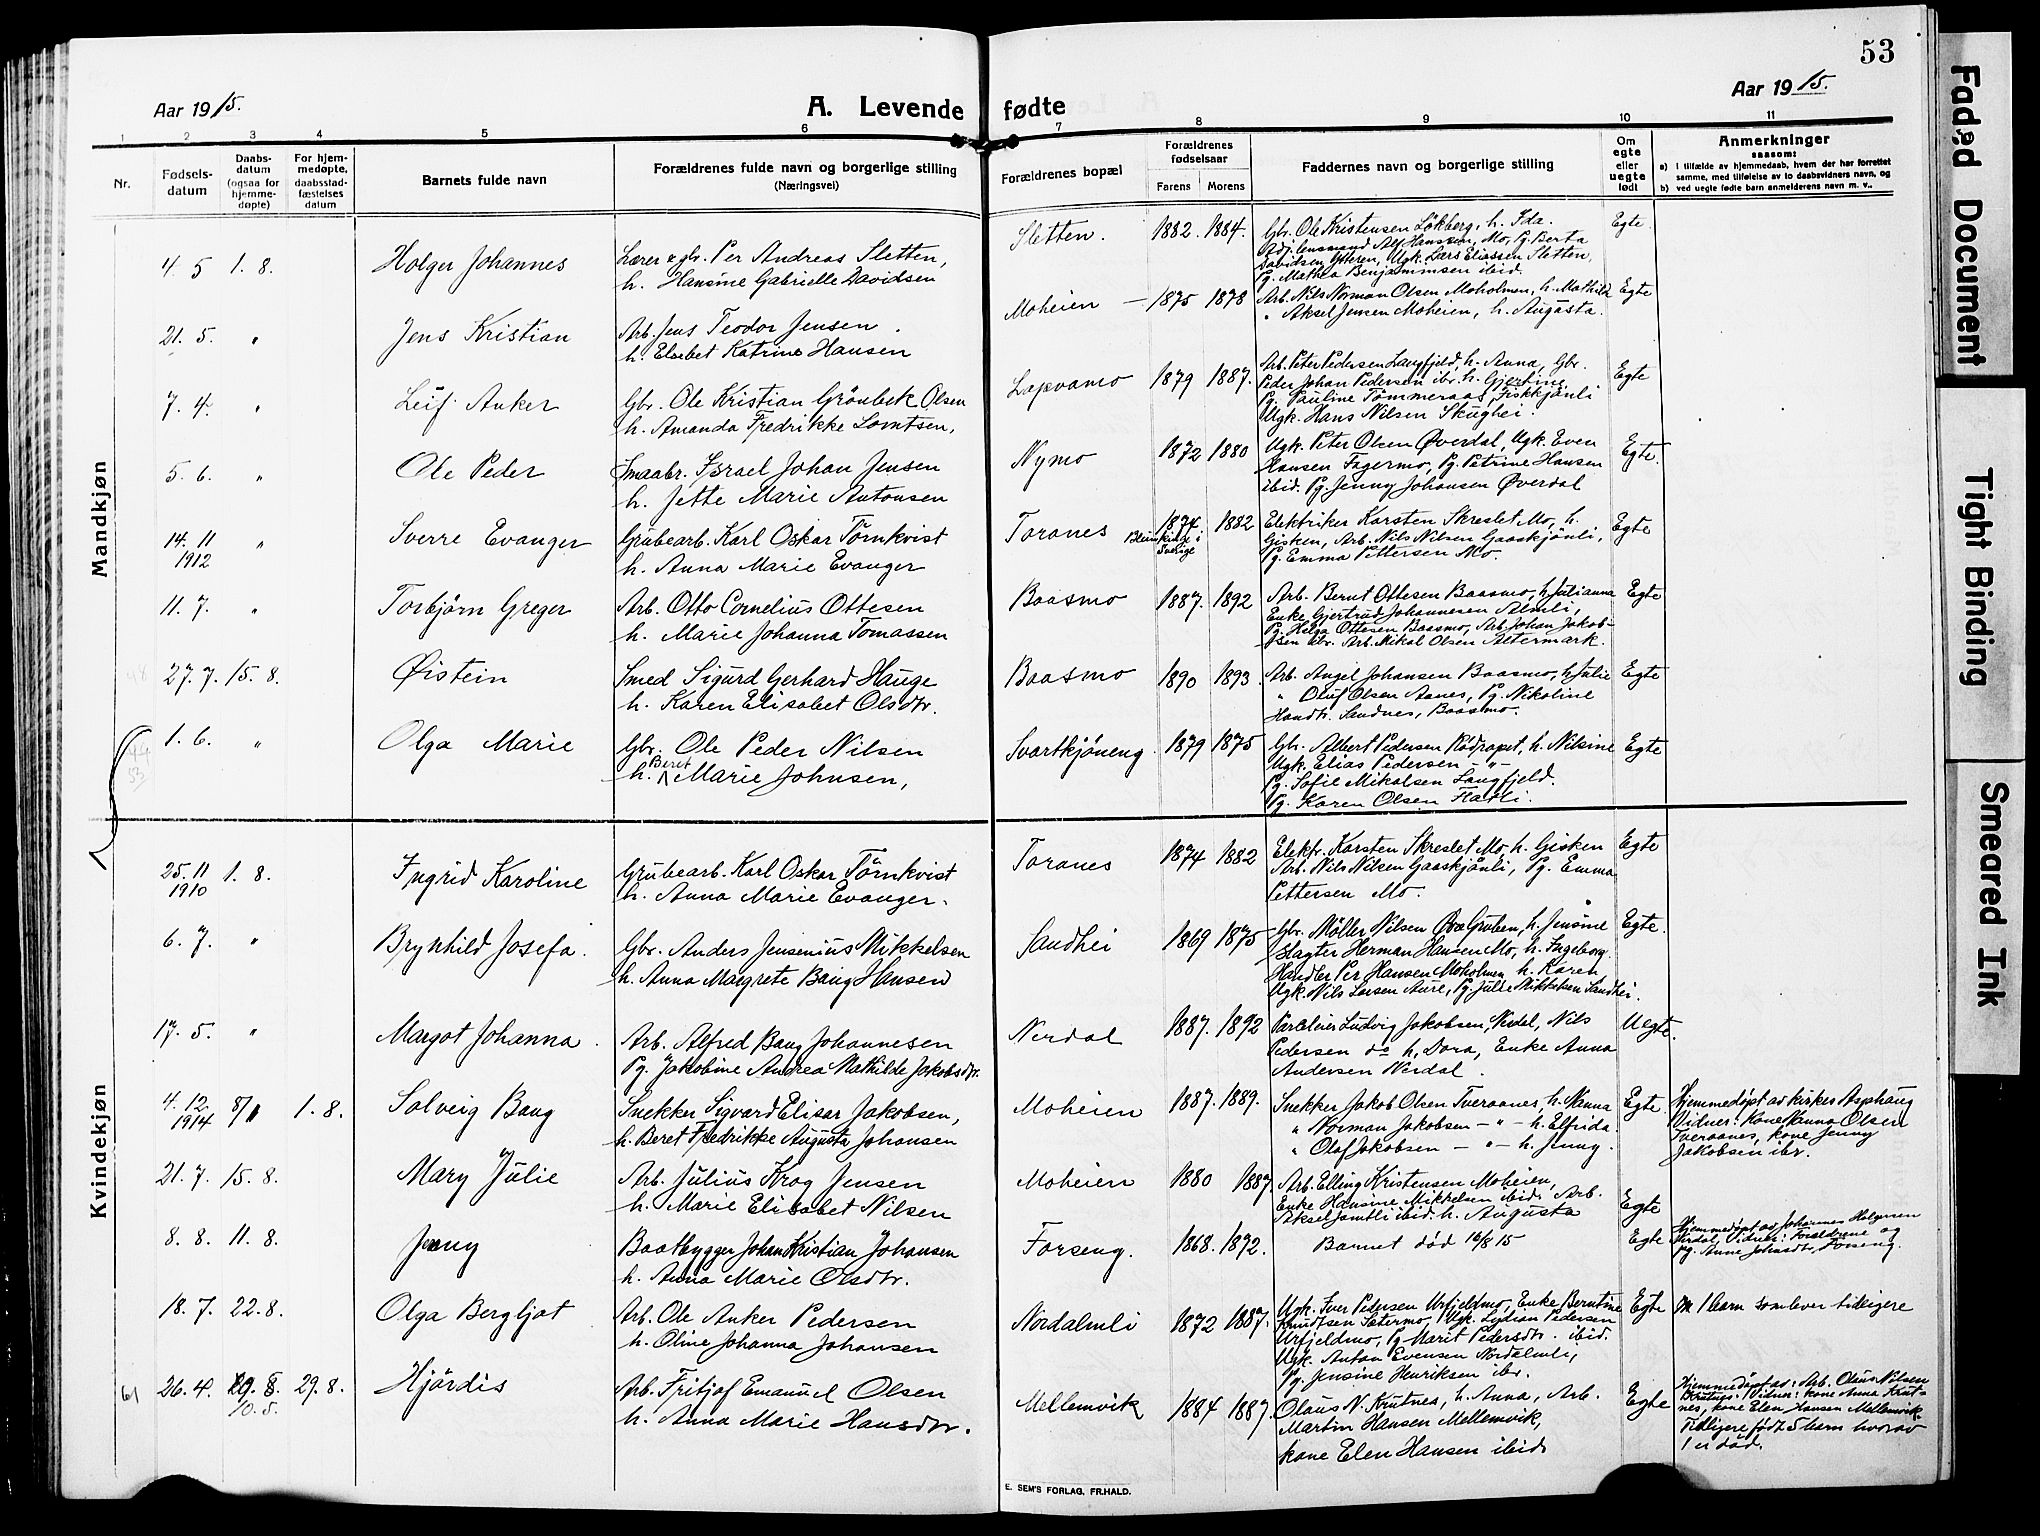 53
Aar 1915.
A. Levende fødte
Aar 1915.
1 2 3 4 5 6 7 8 9 10 11
Nr.
Fødsels-
datum
Daabs-
datum
(ogsaa for
hjemme-
døpte)
For hjem-
medøpte,
daabsstad-
fæstelses
datum
Barnets fulde navn
Forældrenes fulde navn og borgerlige stilling
(Næringsvei)
Forældrenes bopæl
Forældrenes
fødselsaar
Farens Morens
Faddernes navn og borgerlige stilling
Om
egte
eller
uegte
født
Anmerkninger
saasom:
a) I tilfælde av hjemmedaab, hvem der har forrettet
samme, med tilføielse av to daabsvidners navn, og
b) ved uegte fødte barn anmelderens navn m. v..
Mandkjøn
4. 5 1. 8. Holger Johannes
Lærer & gbr. Per Andreas Sletten,
h. Hansine Gabrielle Davidsen
Sletten. 1882. 1884.
Gbr. Ole Kristensen Lökberg, h. Ida.
Adj. lensmand Alf Hanssen, Mo, Pg. Berta
Davidsen Ytteren, Ugk. Lars Eliassen Sletten,
Pg. Mathea Benjaminsen ibid.
Egte
21. 5. " Jens Kristian
Arb. Jens Teodor Jensen.
h. Elsebet Katrine Hansen
Moheien — 1875 1878
Arb. Nils Norman Olsen Moholmen, h. Mathild
" Aksel Jensen Moheien, h. Augusta.
Egte
7. 4. " Leif Anker
Gbr. Ole Kristian Grönbek Olsen
h. Amanda Fredrikke Lomtsen,
Lapvamo 1879 1887.
Arb. Peter Pedersen Langfjeld, h. Anna, Gbr.
Peder Johan Pedersen ibr. h. Gjertine,
Pg. Pauline Tømmeraas, Fiskkjönli
Ugk. Hans Nilsen Skughei.
Egte
5. 6. " Ole Peder
Smaabr. Israel Johan Jensen
h. Jette Marie Antonsen
Nymo 1872 1880
Ugk. Peter Olsen Øverdal, Ugk. Even
Hansen Fagermo, Pg. Petrine Hansen
ibid. Pg. Jenny Johansen Øverdal
Egte.
14. 11 " Sverre Evanger
1912
Grubearb. Karl Oskar Törnkvist
h. Anna Marie Evanger
Toranes 1874 1882
Blenkinge i
Sverige
Elektriker Karsten Skreslet Mo, h.
Gisken, Arb. Nils Nilsen Gaaskjönli,
Pg. Emma Pettersen Mo.
Egte
11. 7. " Torbjörn Greger
Arb. Otto Cornelius Ottesen
h. Marie Johanna Tomassen
Baasmo 1887. 1892
Arb. Bernt Ottesen Baasmo, h. Julianna
Enke Gjertrud Johannesen Almli,
Pg. Helga Ottesen Baasmo, Arb. Johan Jakob-
sen ibr. Arb. Mikal Olsen Altermark.
Egte
27. 7. 15. 8. Øistein
Smed Sigurd Gerhard Hauge
h. Karen Elisabet Olsdtr.
Baasmo 1890 1893
Arb. Angel Johansen Baasmo, h. Julie
" Oluf Olsen Aanes, Pg. Nikoline
Hansdtr. Sandnes, Baasmo.
Egte
1. 6. " Olga Marie
Gbr. Ole Peder Nilsen
h. Beret Marie Johnsen,
Svartkjöneng. 1879 1875
Gbr. Albert Pedersen Rödrapet, h. Nilsine
Ugk. Elias Pedersen — " —
Pg. Sofie Mikalsen Langfjeld.
Pg. Karen Olsen Flatli.
Egte
Kvindekjøn
25. 11 1. 8. Ingrid Karoline
1910
Grubearb. Karl Oskar Törnkvist
h. Anna Marie Evanger.
Toranes 1874 1882
Elektr. Karsten Skreslet Mo, h. Gisken
Arb. Nils Nilsen Gaaskjönli, Pg. Emma
Pettersen Mo.
Egte
6. 7. " Brynhild Josefa.
Gbr. Anders Jensenius Mikkelsen
h. Anna Margrete Baug Hansen
Sandhei 1869 1875
Gbr. Möller Nilsen Øvre Gruben, h. Jensine
Slagter Herman Hansen Mo, h. Ingeborg.
Handler Per Hansen Moholmen h. Karen,
Ugk. Nils Larsen Aure, Pg. Julie Mikkelsen Sandhei.
Egte.
17. 5. " Margot Johanna.
Arb. Alfred Baug Johannesen
Pg. Jakobine Andrea Mathilde Jakobsdtr.
Nerdal 1887. 1892
Parcleier Ludvig Jakobsen, Nerdal, Nils
Pedersen do h. Dora, Enke Anna
Andersen Nerdal.
Uegte.
4. 12. 8/1 1. 8. Solveig Baug
1914
Snekker Sigvard Elisar Jakobsen,
h. Beret Fredrikke Augusta Johansen
Moheien 1887. 1889.
Snekker Jakob Olsen Tveraanes, h. Nanna
" Norman Jakobsen — " — h. Elfrida.
" Olaf Jakobsen — " — h. Jenny.
Egte.
Hjemmedøpt av kirkes. Asphaug
Vidner: Kone Nanna Olsen
Tveraanes, kone Jenny
Jakobsen ibr.
21. 7. 15. 8. Mary Julie
Arb. Julius Krog Jensen
h. Marie Elisabet Nilsen
Moheien 1880 1887.
Arb. Elling Kristensen Moheien,
Enke Hansine Mikkelsen ibid. Arb.
Aksel Jamtli ibid. h. Augusta
Egte
8. 8. 11. 8. Jenny
Baatbygger Johan Kristian Johansen
h. Anna Marie Olsdtr.
Forseng. 1868. 1872.
Barnet död 16/8 15
Egte
Hjemmedøpt av Johannes Holgersen
Nerdal, Vidner: Foreldrene og
Pg. Anne Johnsdtr. Forseng.
18. 7. 22. 8. Olga Bergljot
Arb. Ole Anker Pedersen
h. Oline Johanna Johansen
Nordalmli 1872 1887.
Ugk. Iver Pedersen Urfjeldmo, Enke Berntine
Knudtsen Sætermo, Ugk. Lydian Pedersen
Urfjeldmo, Pg Marit Pedersdtr. ibid.
Ugk. Anton Evensen Nordalmli,
Pg. Jensine Henriksen ibr.
Egte
M 1 barn som lever tidligere
61 26. 4. 29. 8. 29. 8. Hjördis
10. 5.
Arb. Fritjof Emanuel Olsen
h. Anna Marie Hansdtr.
Mellemvik 1884 1887.
Olaus N. Krutnes, h. Anna, Arb.
Martin Hansen Mellemvik,
kone Elen Hansen ibid.
Egte
Hjemmedøpt av: Arb. Olaus Nilsen
Krutnes. Vidner: kone Anna Krut-
nes, kone Elen Hansen Mellemvik.
Tidligere født 5 barn hvorav
1 er död.
E. SEM'S FORLAG, FR.HALD.
Faded Document
Tight Binding
Smeared Ink